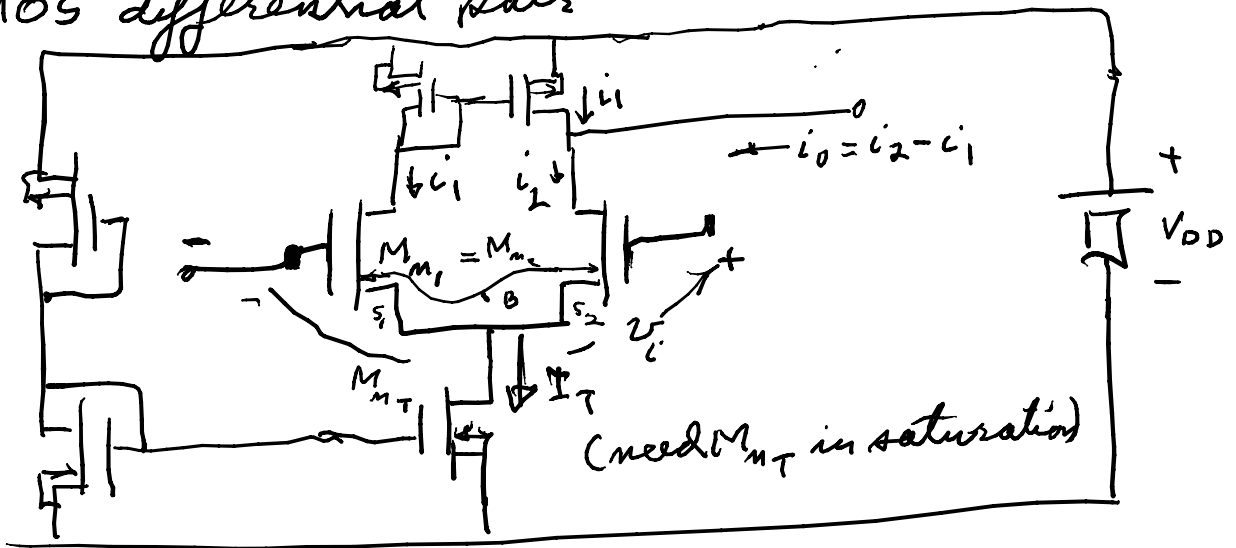 MOS differential pair
i₁
i₀ = i₂ - i₁
i₁ i₂
+
V_DD
-
-
M_n₁ = M_n₂
+
B
S₁ S₂
-
v_i
-
M_nT
I_T
(need M_nT in saturation)